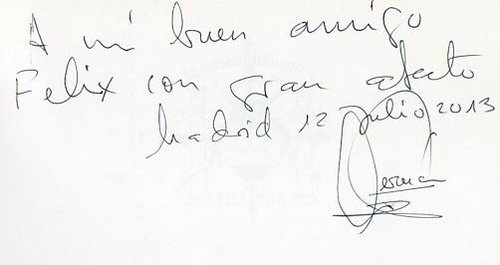 A mi buen amigo
Felix con gran afecto
Madrid 12 Julio 2013
German